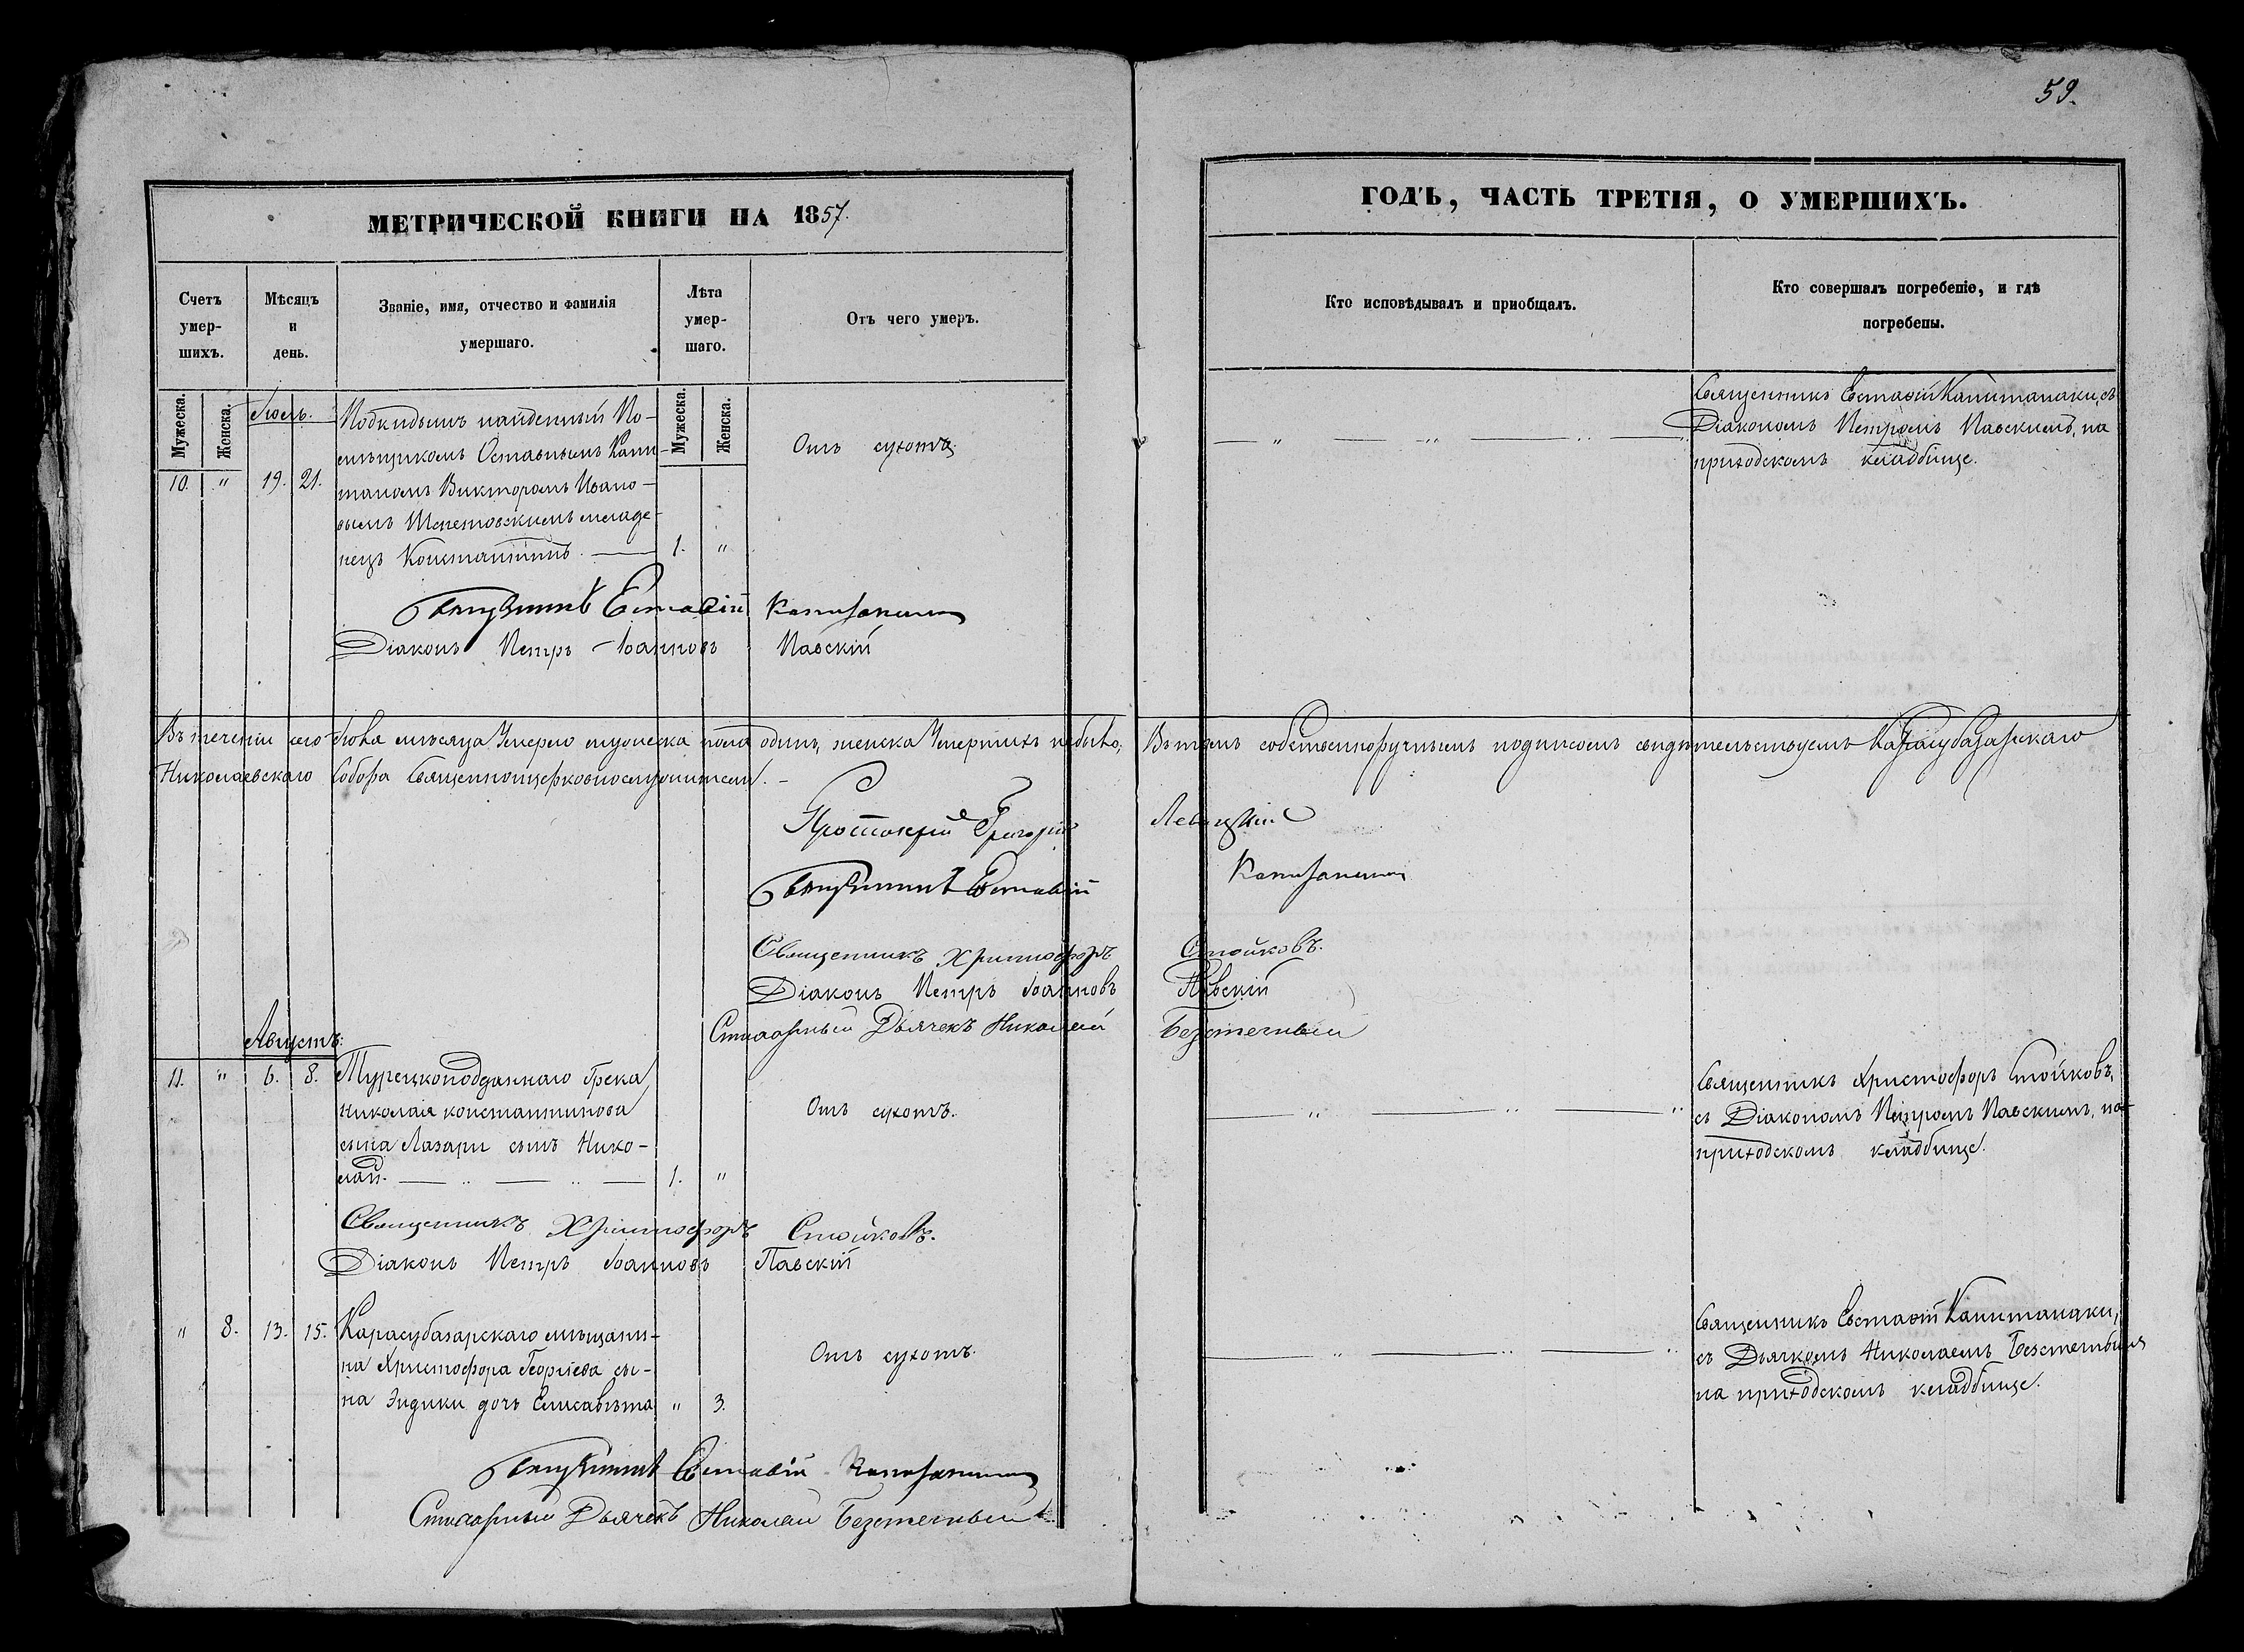 59.
МЕТРИЧЕСКОЙ КНИГИ НА 1857.
ГОДЪ, ЧАСТЬ ТРЕТІЯ, О УМЕРШИХЪ.
Счетъ умер-шихъ.
Мѣсяцъ и день.
Званіе, имя, отчество и фамилія умершаго.
Лѣта умер-шаго.
Отъ чего умеръ.
Кто исповѣдывалъ и пріобщалъ.
Кто совершалъ погребеніе, и гдѣ погребены.
Мужеска.
Женска.
Мужеска.
Женска.
Іюль.
10. " 19. 21.
Подкидышъ найденный По-
мѣщикомъ Оставнымъ Капи-
таномъ Викторомъ Ивано-
вымъ Шепетовскимъ младе-
нецъ Константинъ. 1. "
Отъ сухотъ.
Священникъ Евстафій Капитанаки, съ
Діакономъ Петромъ Павскимъ, на
приходскомъ кладбище.
Священникъ Евстафій Капитанаки
Діаконъ Петръ Іоанновъ Павскій
Въ теченіи сего Іюля мѣсяца Умерло мужеска пола одинъ, женска Умершихъ небыло, Въ томъ собственноручнымъ подписомъ свидѣтельствуемъ Карасубазарскаго
Николаевскаго Собора Священноцерковнослужители. -
Протоіерей Григорій Левицкій
Священникъ Евстафій Капитанаки
Священникъ Христофоръ Стойковъ.
Діаконъ Петръ Іоанновъ Павскій
Стихарный Дьячекъ Николай Безстечный
Августъ.
11. " 6. 8.
Турецкоподданнаго Грека
Николая Константинова
сына Лазари сынъ Нико-
лай. 1. "
Отъ сухотъ.
Священникъ Христофоръ Стойковъ,
съ Діакономъ Петромъ Павскимъ, на
приходскомъ кладбище.
Священникъ Христофоръ Стойковъ.
Діаконъ Петръ Іоанновъ Павскій
" 8. 13. 15.
Карасубазарскаго мѣщани-
на Христофора Георгіева сы-
на Эндики дочь Елисавѣта " 3.
Отъ сухотъ.
Священникъ Евстафій Капитанаки,
съ Дьячкомъ Николаемъ
на приходскомъ кладбище.
Священникъ Евстафій Капитанаки
Стихарный Дьячекъ Николай Безстечный